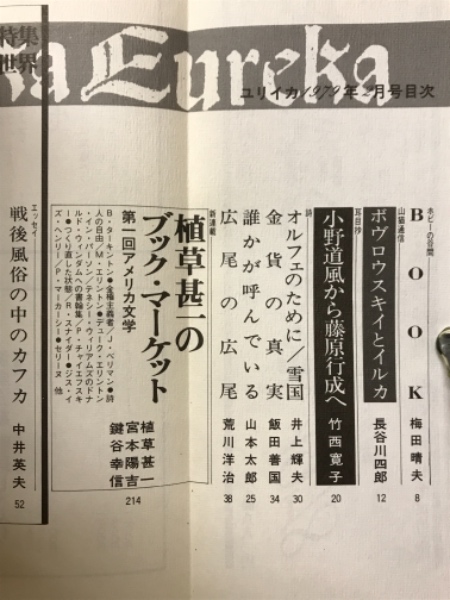 ka Eureka
ユリイカ1979年2月号目次
特集
世界
ホビーの空間
BOOK 梅田晴夫 8
山猫通信
ボヴロウスキイとイルカ 長谷川四郎 12
耳目抄
小野道風から藤原行成へ 竹西寛子 20
詩
オルフェのために/雪国 井上輝夫 30
金貨の真実 飯田善国 34
誰かが呼んでいる 山本太郎 25
広尾の広尾 荒川洋治 38
新連載
植草甚一の
ブック・マーケット
第一回アメリカ文学
植草甚一
宮本陽吉
鍵谷幸信
214
B・ターキントン●金権主義者/J・ベリマン●詩
人の自由/M・エリントン●デューク・エリントン
・イン・パーソン/テネシー・ウィリアムズのドナ
ルド・ウィンダムへの書簡集/P・チャイエフスキ
ー●つくり直した状態/R・スナイダー●ジス・イ
ズ・ヘンリー/P・マーカーシー●セリーヌ 他
エッセイ
戦後風俗の中のカフカ 中井英夫 52